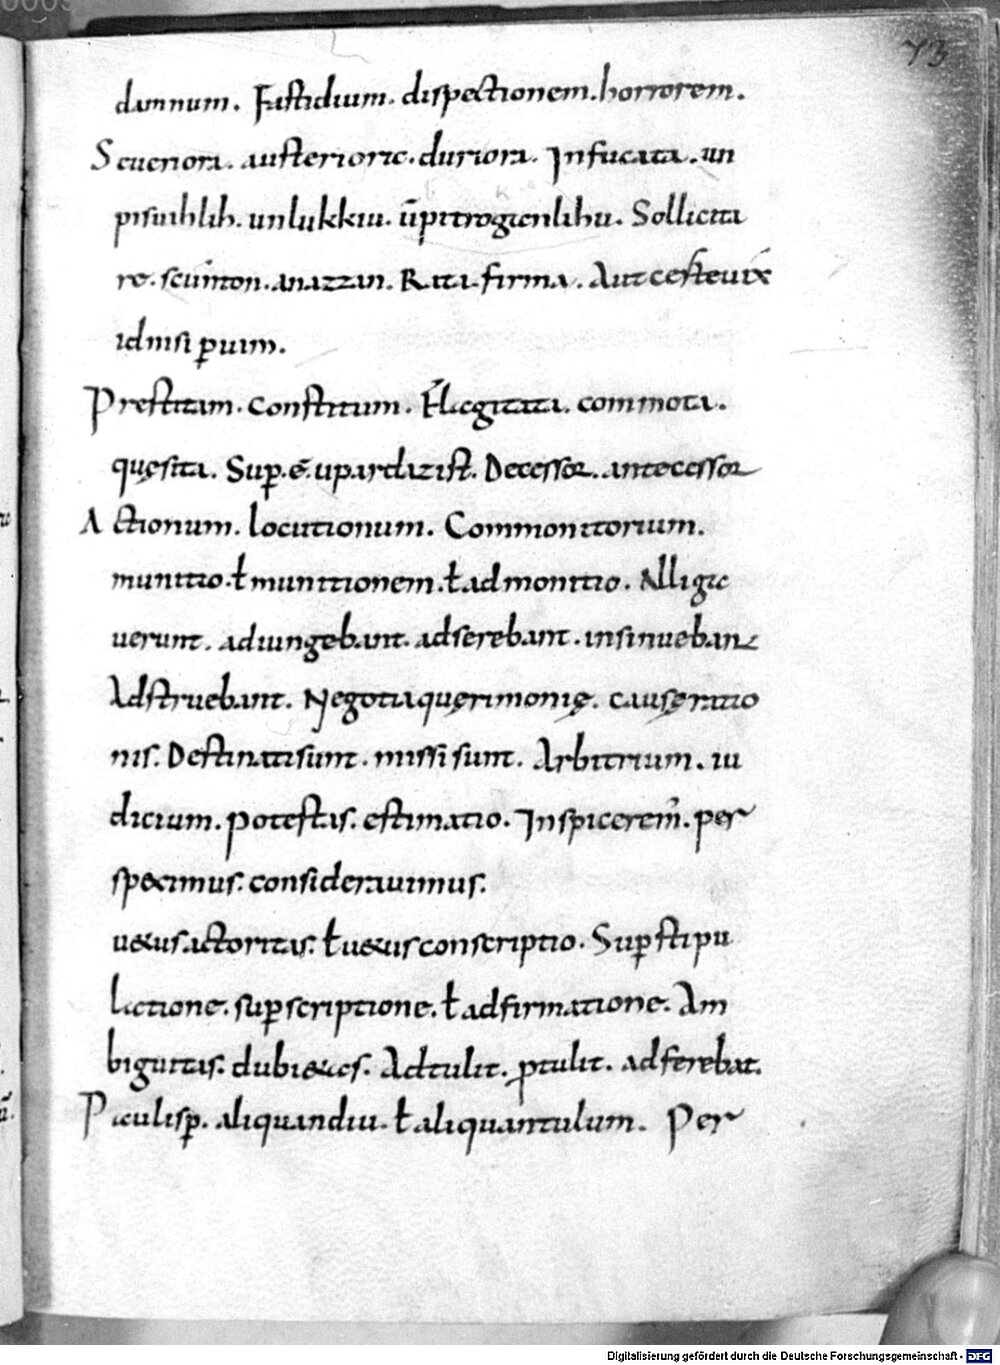 73
damnum. Fastidium. dispectionem. horrorem.
Seueriora. austeriorae. duriora. Infucata. un
pisuihlih. unlukkiu. ūpitrogienlihu. Sollicita
re. scunton. anazzan. Rata. firma. Autcesteuix
id nisi ꝑuim.
Prestitam. constitum. Flagitata. commota.
quęsita. Suꝑ. ē. upardazist. Decessor. antecessor
Actionum. locutionum. Commonitorium.
munitio. ł munitionem. ł admonitio. Allige
uerunt. adiungebant. adserebant. insinuebant
Adstruebant. Negotia quęrimonię. causę ratio
nis. Destinati sunt. missi sunt. Arbitrium. iu
dicium. potestas. estimatio. Inspicerem̄. per
speximus. considerauimus.
uetus. actoritas. ł uetus conscriptio. Suꝑstipu
latione. suꝑscriptione. ł adfirmatione. Am
biguitas. dubietas. Adtulit. ꝓtulit. adferebat.
Paculisꝑ. aliquandiu. ł aliquantulum. Per
Digitalisierung gefördert durch die Deutsche Forschungsgemeinschaft - DFG